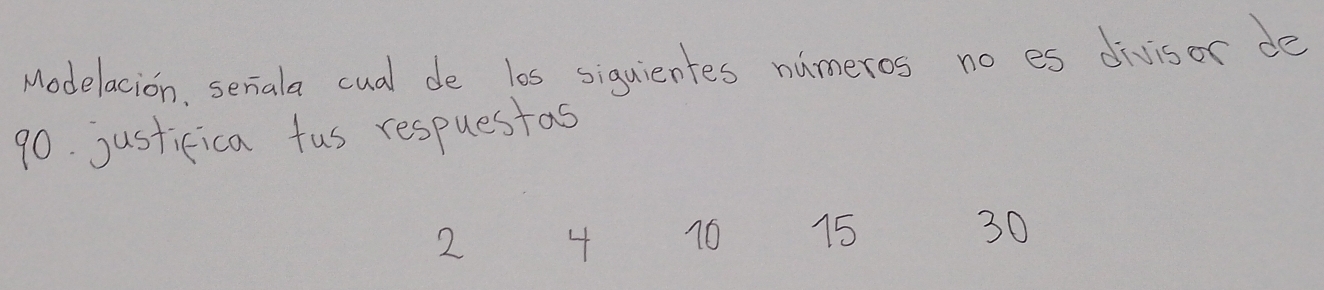 Modelación. señala cual de los siguientes números no es divisor de
90. justifica tus respuestas
2 4 10 15 30